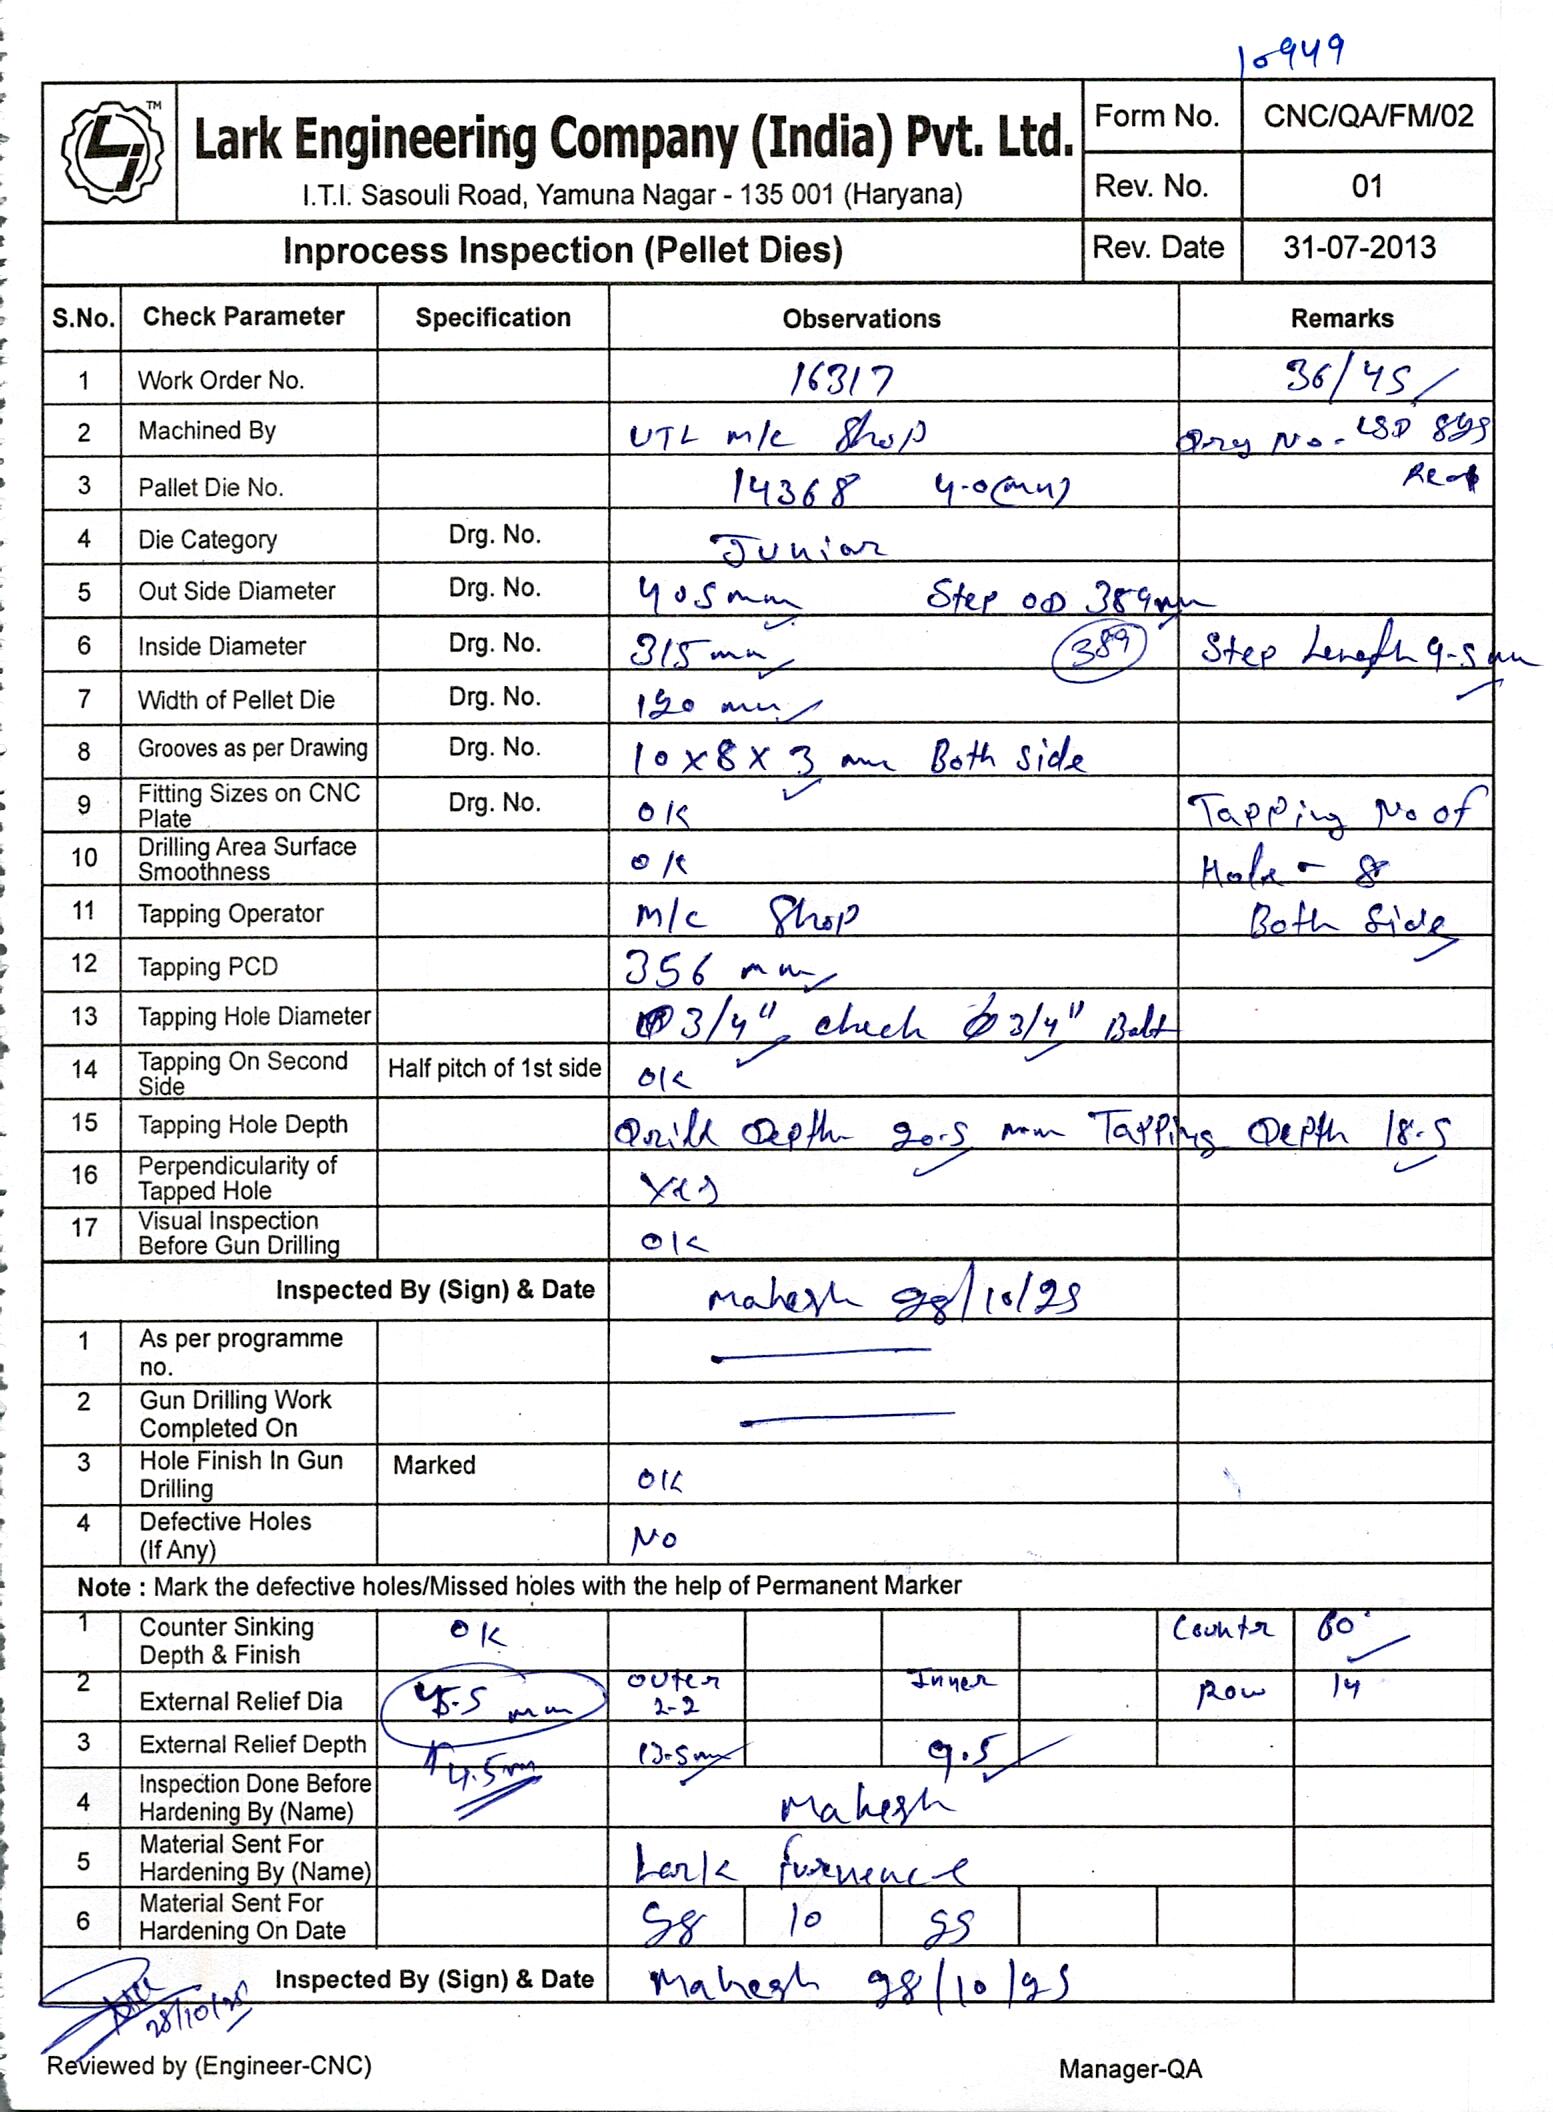 10949
TM
Lark Engineering Company (India) Pvt. Ltd.
I.T.I. Sasouli Road, Yamuna Nagar - 135 001 (Haryana)
Form No. CNC/QA/FM/02
Rev. No. 01
Inprocess Inspection (Pellet Dies) Rev. Date 31-07-2013
S.No. Check Parameter Specification Observations Remarks
1 Work Order No. 16317 36/45
2 Machined By UTL m/c Shop Drg No. LSD
3 Pallet Die No. 14368 4.0(mm)
4 Die Category Drg. No. Junior
5 Out Side Diameter Drg. No. 405 mm Step OD 389 mm
6 Inside Diameter Drg. No. 315 mm 389 Step Length 9.5 mm
7 Width of Pellet Die Drg. No. 120 mm
8 Grooves as per Drawing Drg. No. 10 x 8 x 3 mm Both side
9 Fitting Sizes on CNC Plate Drg. No. OK Tapping No of
10 Drilling Area Surface Smoothness OK Hole - 8
11 Tapping Operator m/c Shop Both Side
12 Tapping PCD 356 mm
13 Tapping Hole Diameter Φ 3/4" check Φ 3/4" Bolt
14 Tapping On Second Side Half pitch of 1st side OK
15 Tapping Hole Depth Drill Depth 20.5 mm Tapping Depth 18.5
16 Perpendicularity of Tapped Hole Yes
17 Visual Inspection Before Gun Drilling OK
Inspected By (Sign) & Date Mahesh 28/10/25
1 As per programme no.
2 Gun Drilling Work Completed On
3 Hole Finish In Gun Drilling Marked OK
4 Defective Holes (If Any) No
Note : Mark the defective holes/Missed holes with the help of Permanent Marker
1 Counter Sinking Depth & Finish OK Counter 60°
2 External Relief Dia 5.5 mm Outer 2-2 Inner Row 14
3 External Relief Depth 4.5mm 13.5mm 9.5
4 Inspection Done Before Hardening By (Name) Mahesh
5 Material Sent For Hardening By (Name) Lark furnence
6 Material Sent For Hardening On Date 28 10 25
Inspected By (Sign) & Date Mahesh 28/10/25
28/10/25
Reviewed by (Engineer-CNC) Manager-QA